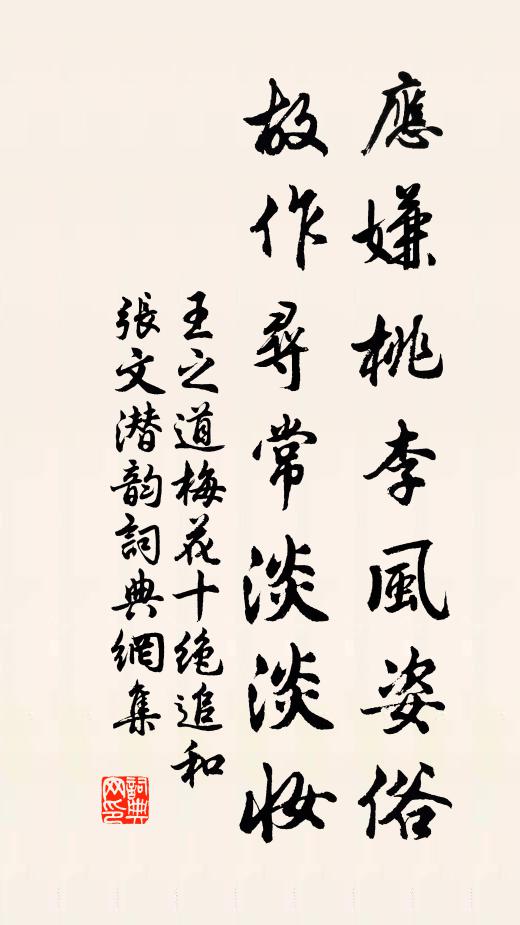 應嫌桃李風姿俗
故作尋常淡淡妝
王之道梅花十絶追和
張文潛韵詞典網集
詞典
网印